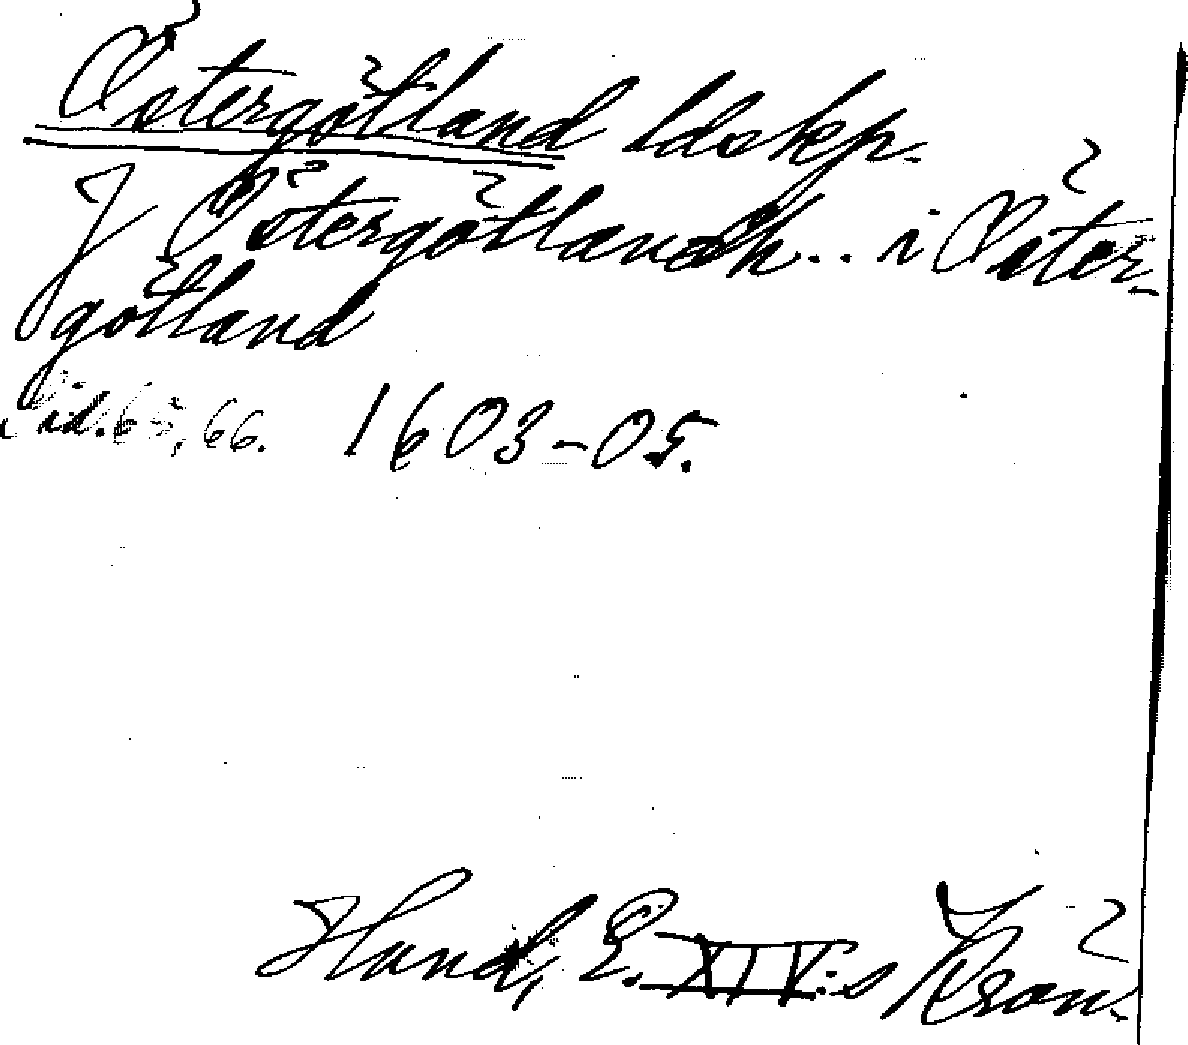 Östergötland ldskp.
J Östergötlandh.. i Öster-
götland
Sid. 65, 66. 1603-05.
Hand, E. XIV:s Krön.